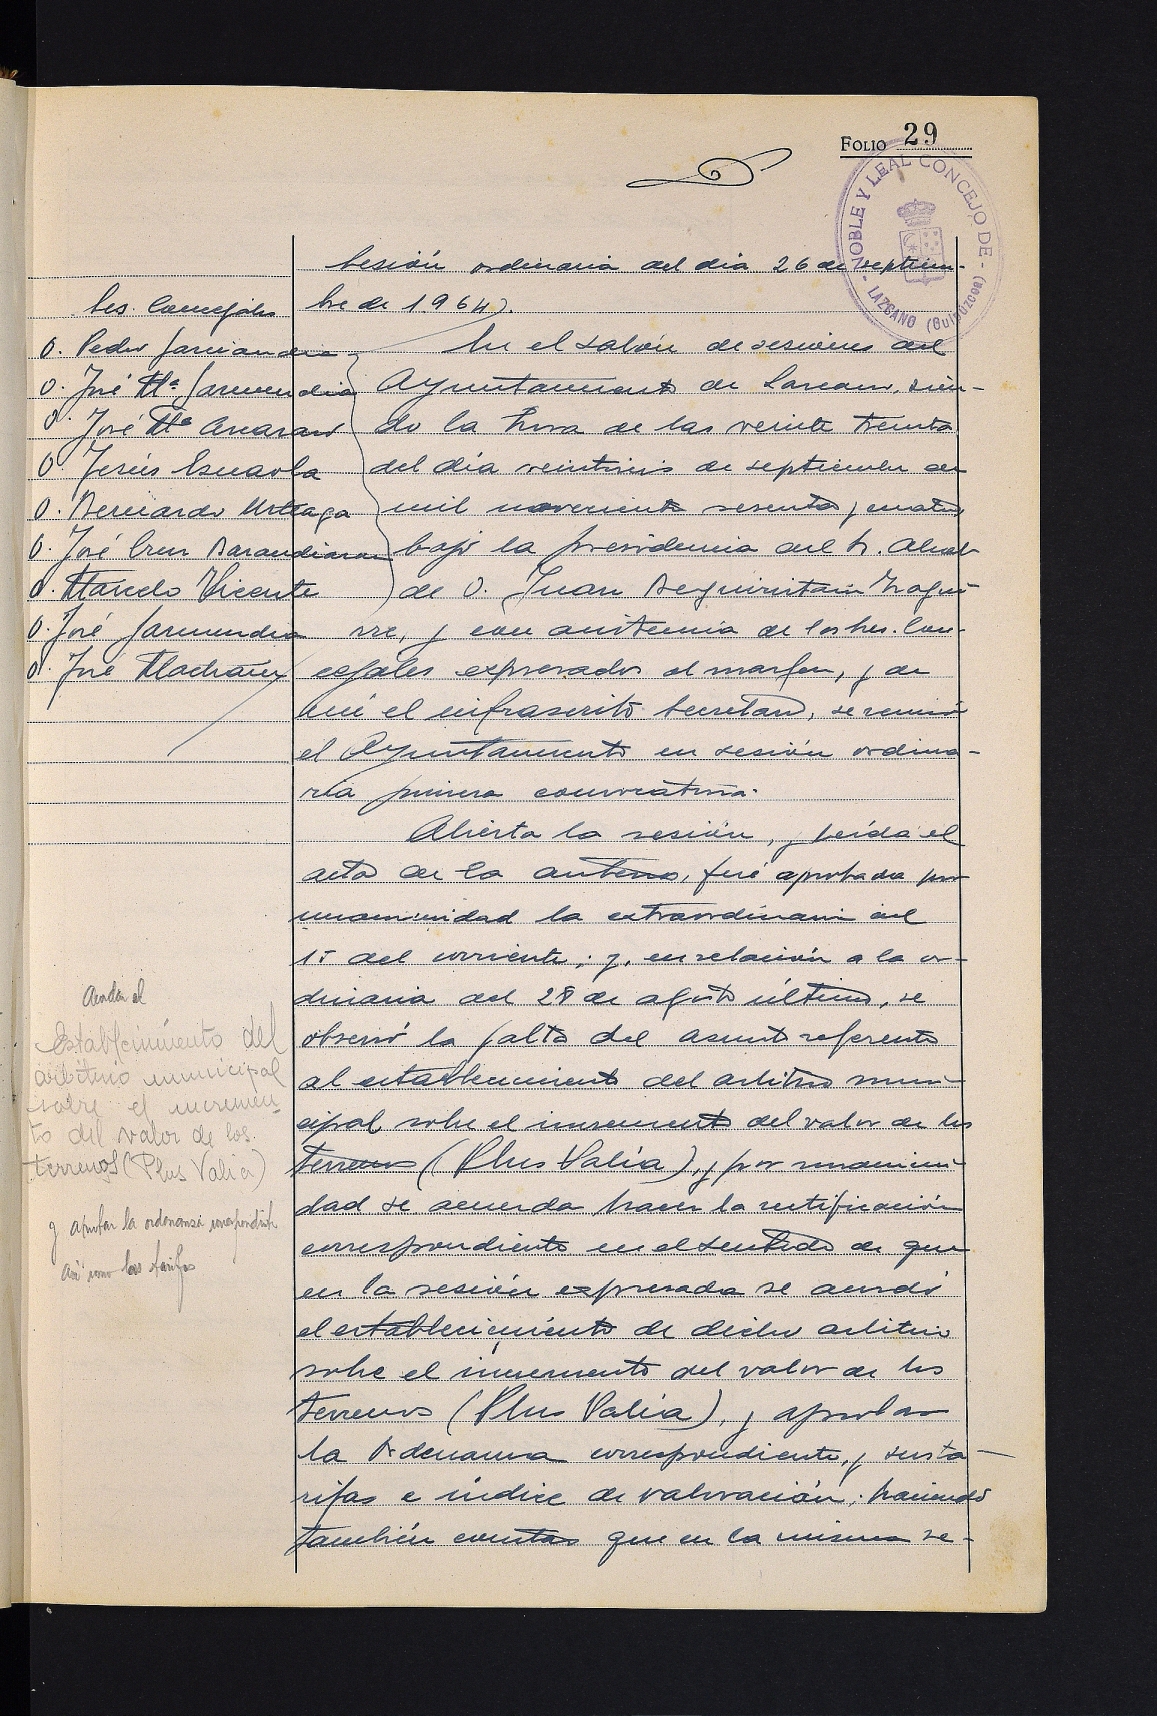 FOLIO 29
NOBLE Y LEAL CONCEJO DE
LAZCANO (Guipúzcoa)
Sesión ordinaria del dia 26 de septiem-
bre de 1964).
Sres. Concejales
D. Pedro
D. José Mª Garmendia
D. José Mª
D. Jesús
D. Bernardo Urteaga
D. José Cruz Barandiaran
D. Marcelo Vicente
D. José Garmendia
D. José
En el salón de sesiones del
Ayuntamiento de Lazcano, sien-
do la hora de las veinte treinta
del día veintiseis de septiembre de
mil novecientos sesenta y cuatro
bajo la presidencia del Sr. Alcal-
de D. Juan
rre, y con asistencia de los Sres. Con-
cejales expresados al margen, y de
mí el infrascrito Secretario, se reunió
el Ayuntamiento en sesión ordina-
ria primera convocatoria.
Abierta la sesión, y leída el
acta de la anterior, fué aprobada por
unanimidad la extraordinaria del
15 del corriente; y, en relación a la or-
dinaria del 28 de agosto último, se
observó la falta del asunto referente
al establecimiento del arbitrio muni-
cipal sobre el incremento del valor de los
terrenos (Plus Valía), y por unanimi-
dad se acuerda hacer la rectificación
correspondiente en el sentido de que
en la sesión expresada se acordó
el establecimiento de dicho arbitrio
sobre el incremento del valor de los
terrenos (Plus Valía), y aprobar
la Ordenanza correspondiente, y sus ta-
rifas e índice de valoración; haciendo
también constar que en la misma se-
Acordar el
Establecimiento del
arbitrio municipal
sobre el incremen-
to del valor de los
terrenos (Plus Valía)
y aprobar la ordenanza correspondiente
así como las tarifas